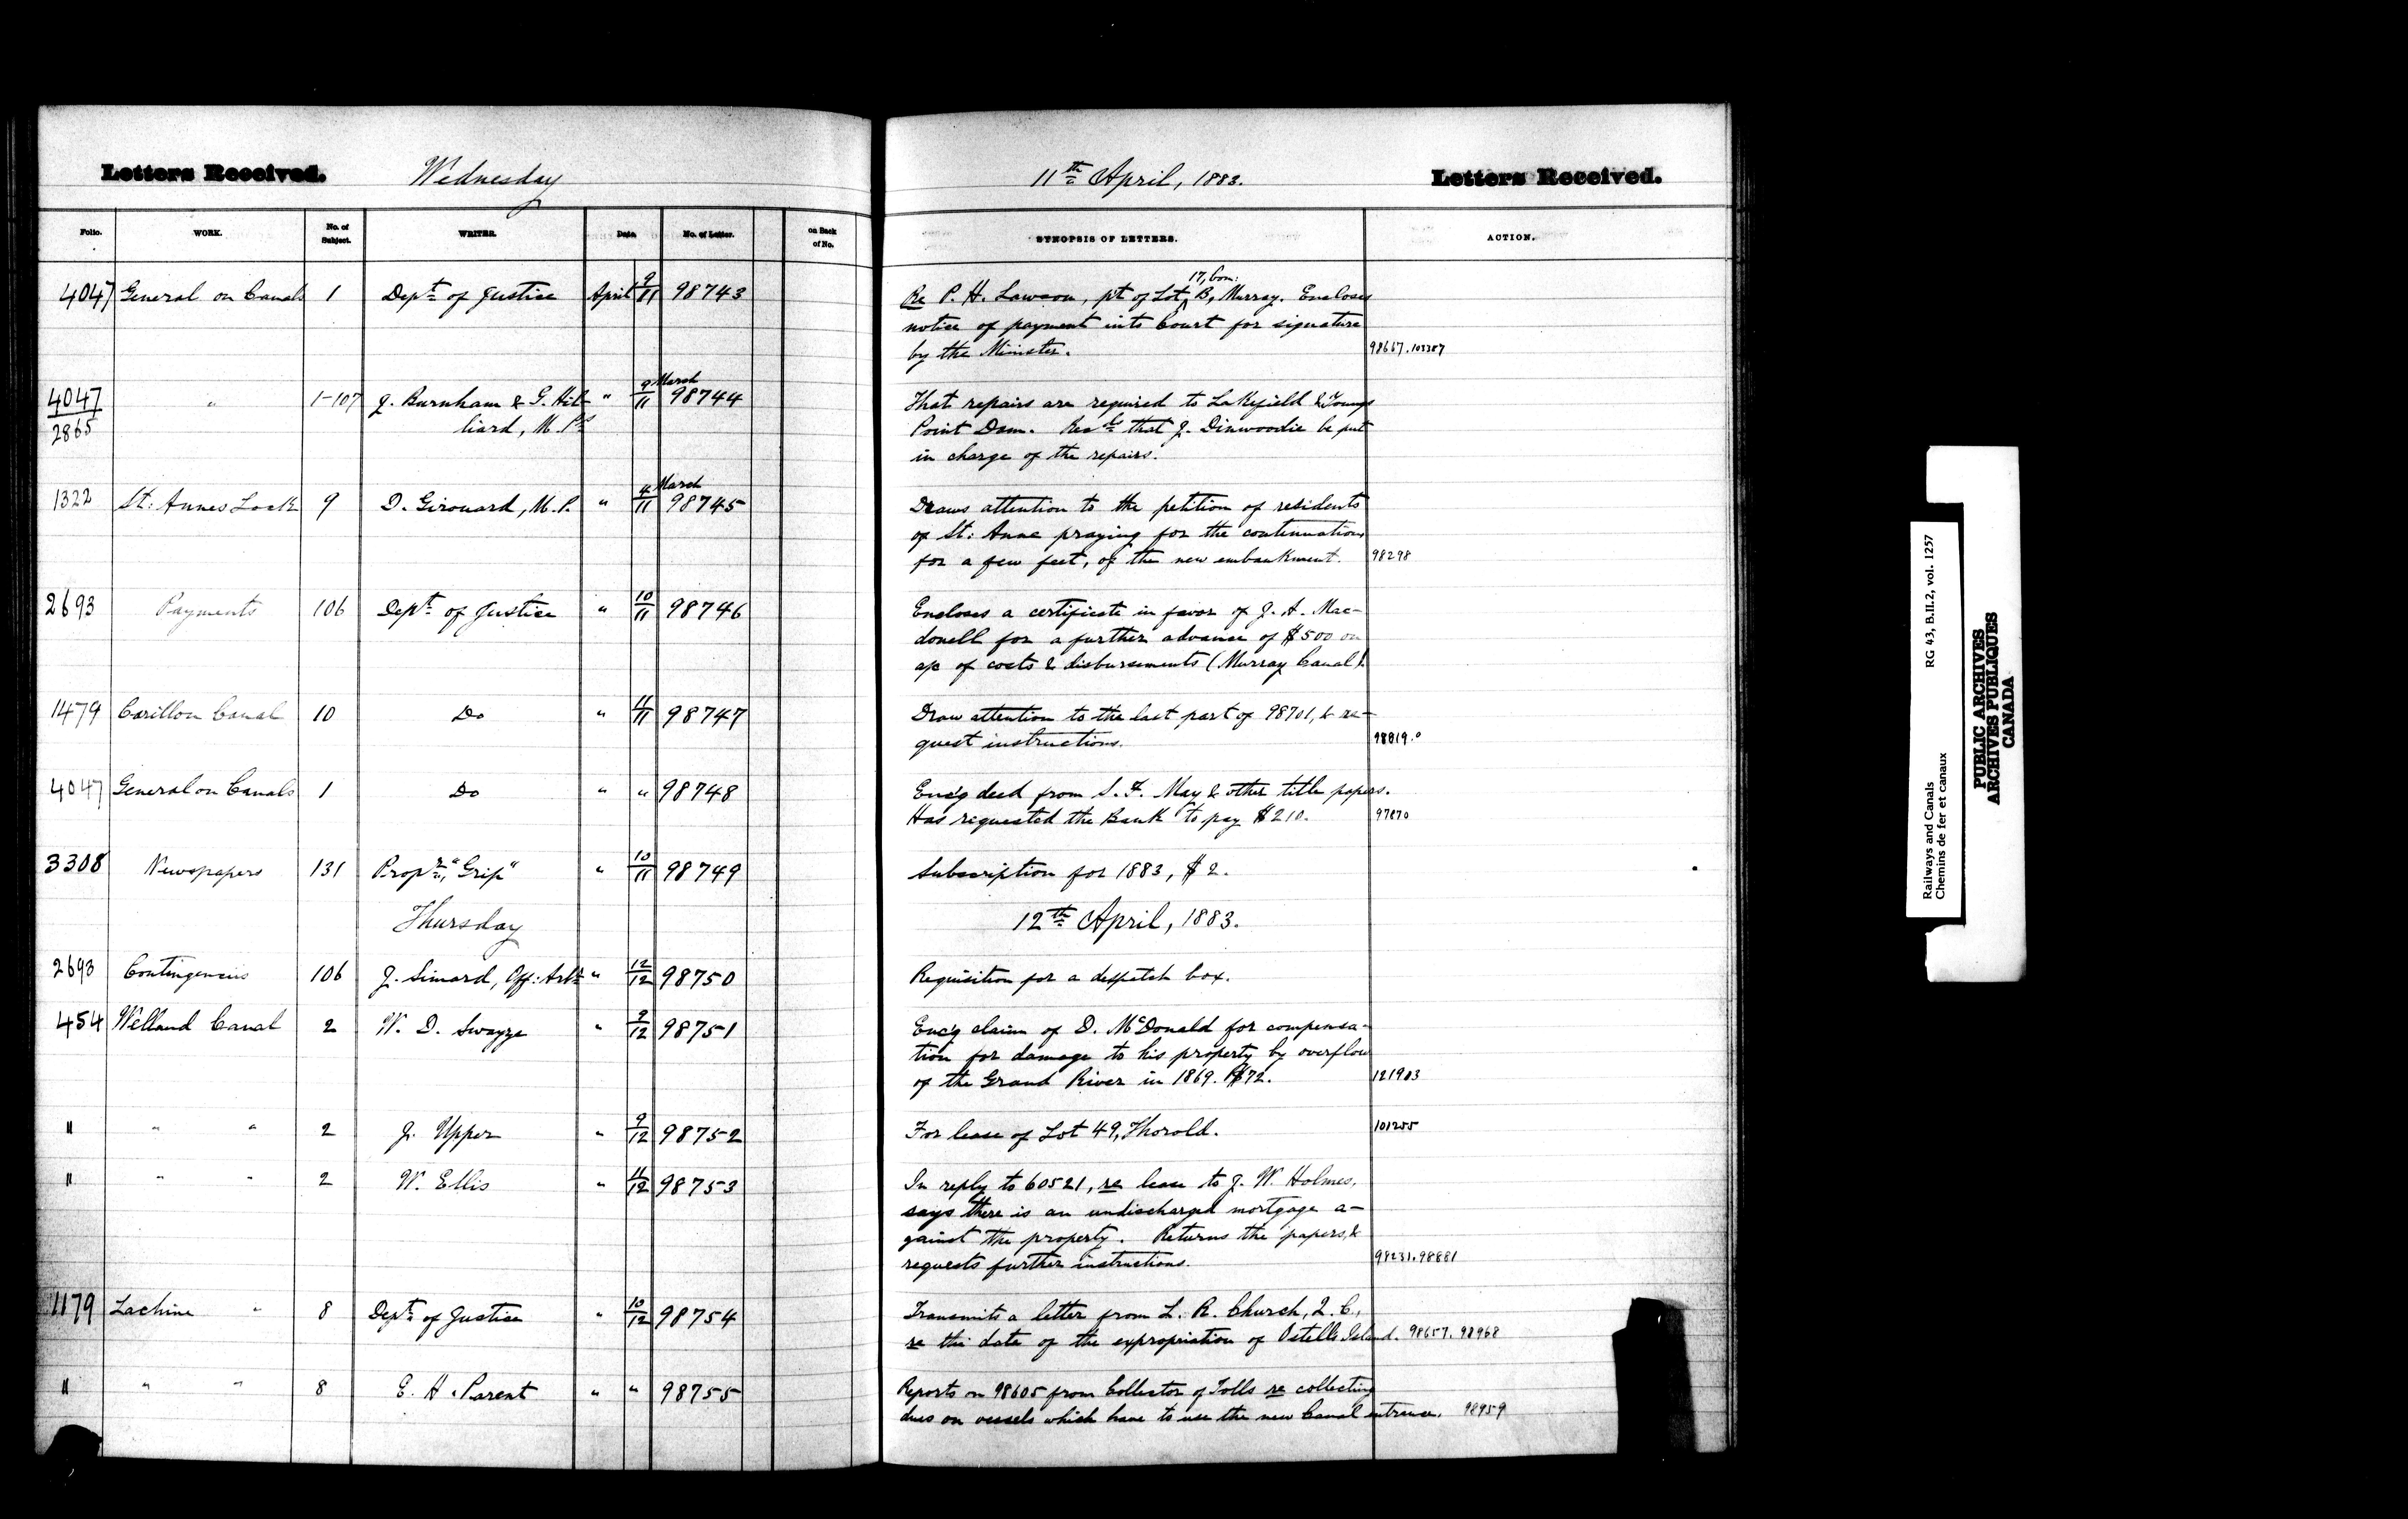 Letters Received. Wednesday 11th April, 1883. Letters Received.
Folio. WORK. No. of Subject. WRITER. Date. No. of Letter. on Back of No. SYNOPSIS OF LETTERS. ACTION.
4047 General on Canals 1 Dept of Justice April 9/11 98743 Re P. H. Lawson, pt of Lot 17, Con: B, Murray. Encloses
notice of payment into Court for signature
by the Minister. 98667. 103387
4047/2865 " 1-107 J. Burnham & G. Hil- " 9/11 March 98744 That repairs are required to Lakefield & Youngs
liard, M. Ps Point Dam. Recds that J. Dinwoodie be put
in charge of the repairs.
1322 St: Annes Lock 9 D. Girouard, M. P. " 4/11 March 98745 Draws attention to the petition of residents
of St: Anne praying for the continuation
for a few feet, of the new embankment. 98298
2693 Payments 106 Dept of Justice " 10/11 98746 Encloses a certificate in favor of J. A. Mac-
donell for a further advance of $500 on
a/c of costs & disbursements (Murray Canal).
1479 Carillon Canal 10 Do " 11/11 98747 Draw attention to the last part of 98701, & re-
quest instructions. 98819.
4047 General on Canals 1 Do " " 98748 Enc'g deed from S. F. May & other title papers.
Has requested the Bank to pay $210. 97870
3308 Newspapers 131 Propr, "Grip" " 10/11 98749 Subscription for 1883, $2.
Thursday 12th April, 1883.
2693 Contingencies 106 J. Simard, Off: Arbr " 12/12 98750 Requisition for a despatch box.
454 Welland Canal 2 W. D. Swayze " 9/12 98751 Enc'g claim of D. McDonald for compensa-
tion for damage to his property by overflow
of the Grand River in 1869. $72. 121903
" " " 2 J. Upper " 9/12 98752 For lease of Lot 49, Thorold. 101255
" " " 2 W. Ellis " 11/12 98753 In reply to 60521, re lease to J. W. Holmes,
says there is an undischarged mortgage a-
gainst the property. Returns the papers, &
requests further instructions. 98231. 98881
1179 Lachine " 8 Dept of Justice " 10/12 98754 Transmits a letter from L. R. Church, Q. C.,
re the date of the expropriation of Ostells Island. 98657. 98968
" " " 8 E. H. Parent " " 98755 Reports on 98605 from Collector of Tolls re collecting
dues on vessels which have to use the new Canal entrance. 98959
Railways and Canals RG 43, B.II.2, vol. 1257
Chemins de fer et canaux
PUBLIC ARCHIVES
ARCHIVES PUBLIQUES
CANADA